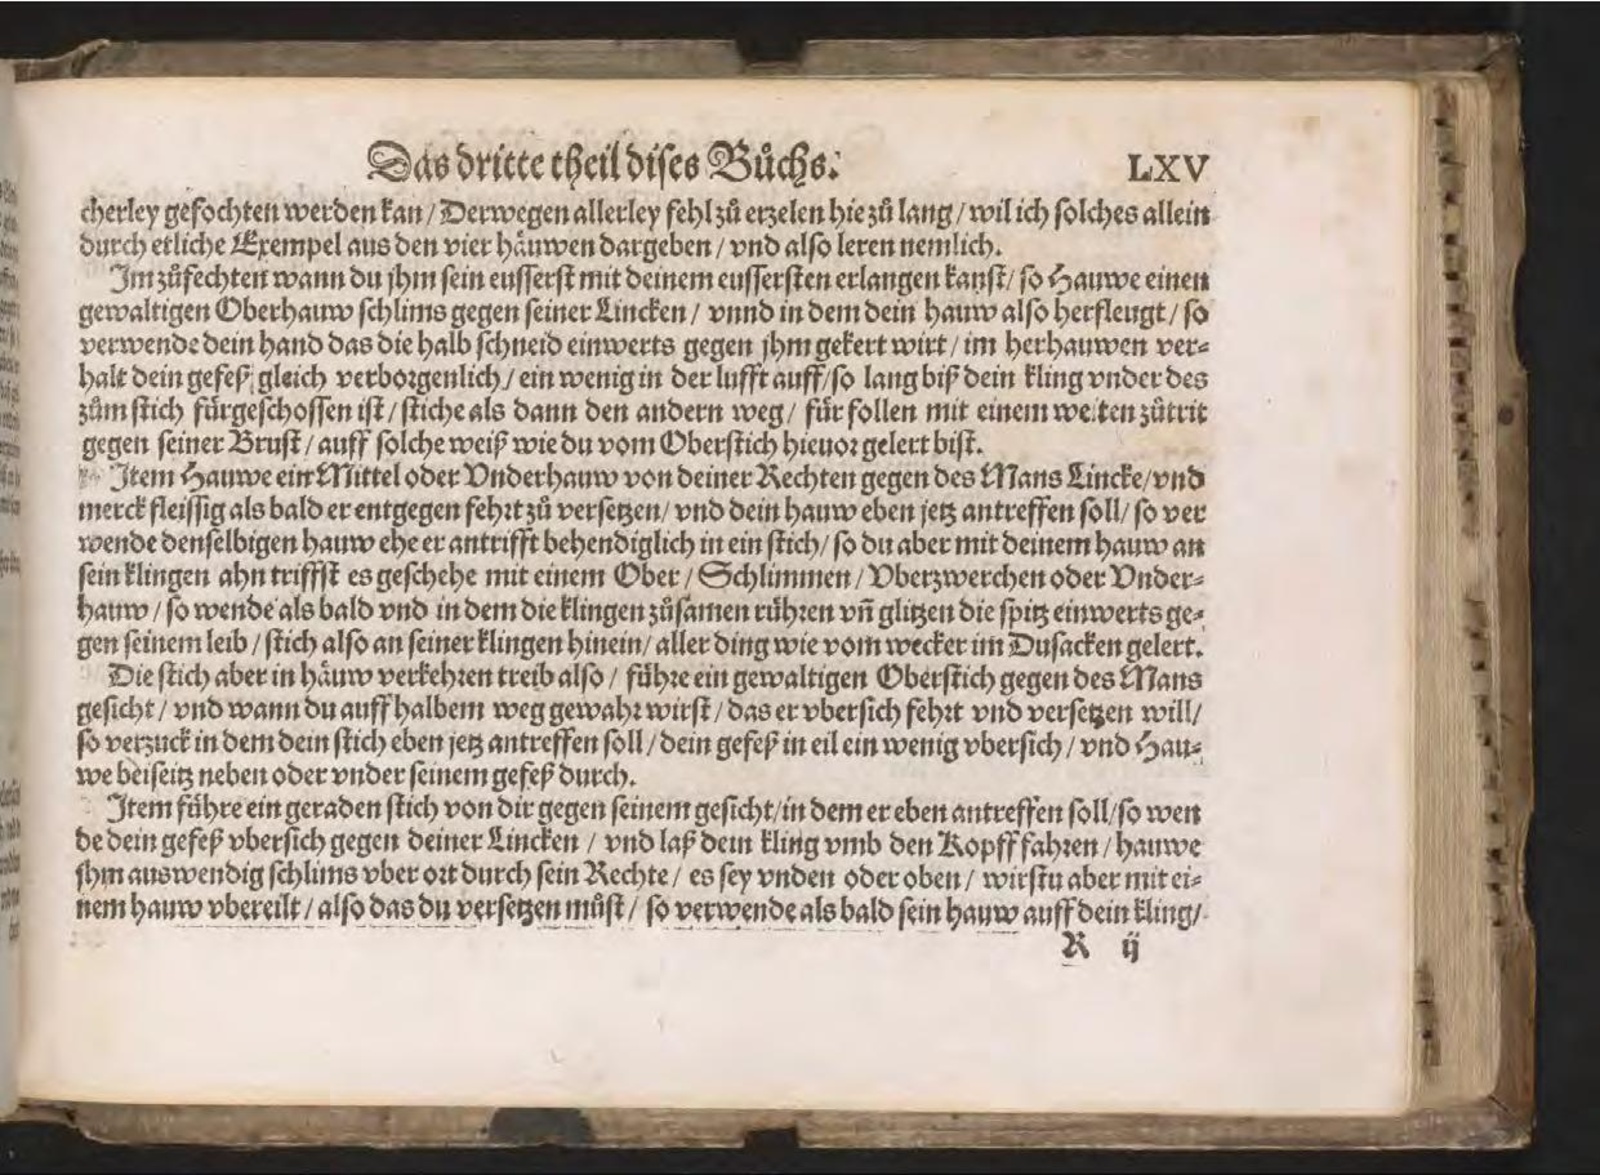 Das dritte theil dises Bůchs. LXV
cherley gefochten werden kan / Derwegen allerley fehl zů erzelen hie zů lang / wil ich solches allein
durch etliche Exempel aus den vier häuwen dargeben / vnd also leren nemlich.
Im zůfechten wann du jhm sein eusserst mit deinem eussersten erlangen kanst / so Hauwe einen
gewaltigen Oberhauw schlims gegen seiner Lincken / vnnd in dem dein hauw also herfleugt / so
verwende dein hand das die halb schneid einwerts gegen jhm gekert wirt / im herhauwen ver-
halt dein gefeß gleich verborgenlich / ein wenig in der lufft auff / so lang biß dein kling vnder des
zům stich fürgeschossen ist / stiche als dann den andern weg / für follen mit einem weiten zůtrit
gegen seiner Brust / auff solche weiß wie du vom Oberstich hieuor gelert bist.
Item Hauwe ein Mittel oder Vnderhauw von deiner Rechten gegen des Mans Lincke / vnd
merck fleissig als bald er entgegen fehrt zů versetzen / vnd dein hauw eben jetz antreffen soll / so ver
wende denselbigen hauw ehe er antrifft behendiglich in ein stich / so du aber mit deinem hauw an
sein klingen ahn triffst es geschehe mit einem Ober / Schlimmen / Vberzwerchen oder Vnder-
hauw / so wende als bald vnd in dem die klingen zůsamen rühren vñ glitzen die spitz einwerts ge-
gen seinem leib / stich also an seiner klingen hinein / aller ding wie vom wecker im Dusacken gelert.
Die stich aber in häuw verkehren treib also / führe ein gewaltigen Oberstich gegen des Mans
gesicht / vnd wann du auff halbem weg gewahr wirst / das er vbersich fehrt vnd versetzen will /
so verzuck in dem dein stich eben jetz antreffen soll / dein gefeß in eil ein wenig vbersich / vnd Hau-
we beiseitz neben oder vnder seinem gefeß durch.
Item führe ein geraden stich von dir gegen seinem gesicht / in dem er eben antreffen soll / so wen
de dein gefeß vbersich gegen deiner Lincken / vnd laß dein kling vmb den Kopff fahren / hauwe
jhm auswendig schlims vber ort durch sein Rechte / es sey vnden oder oben / wirstu aber mit ei-
nem hauw vbereilt / also das du versetzen můst / so verwende als bald sein hauw auff dein kling /
R ij